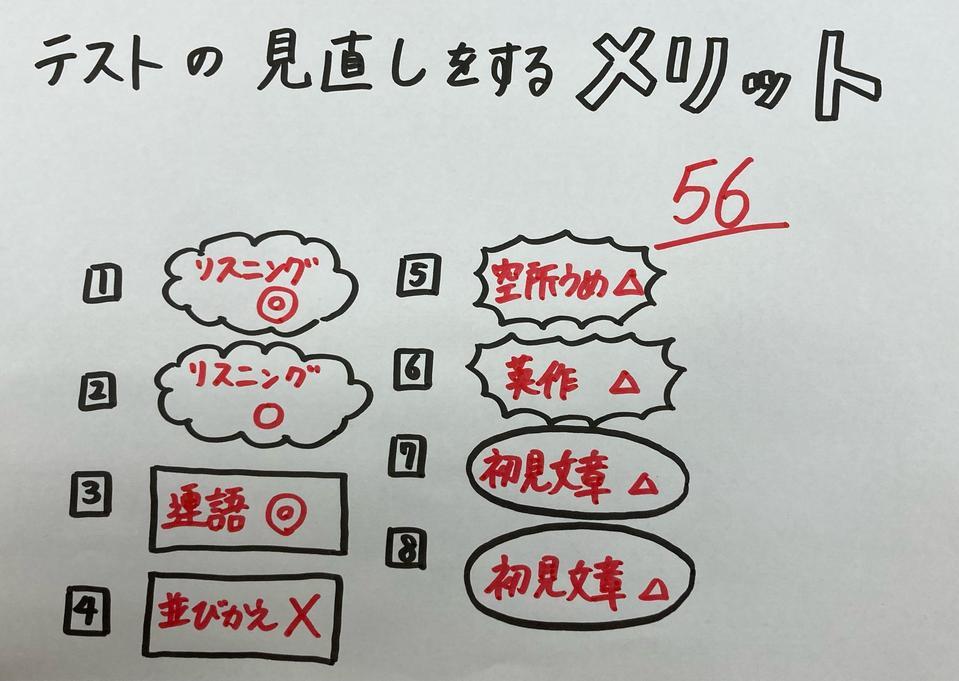 テストの見直しをするメリット
56
1 リスニング ◎
2 リスニング ○
3 連語 ◎
4 並びかえ ×
5 空所うめ △
6 英作 △
7 初見文章 △
8 初見文章 △